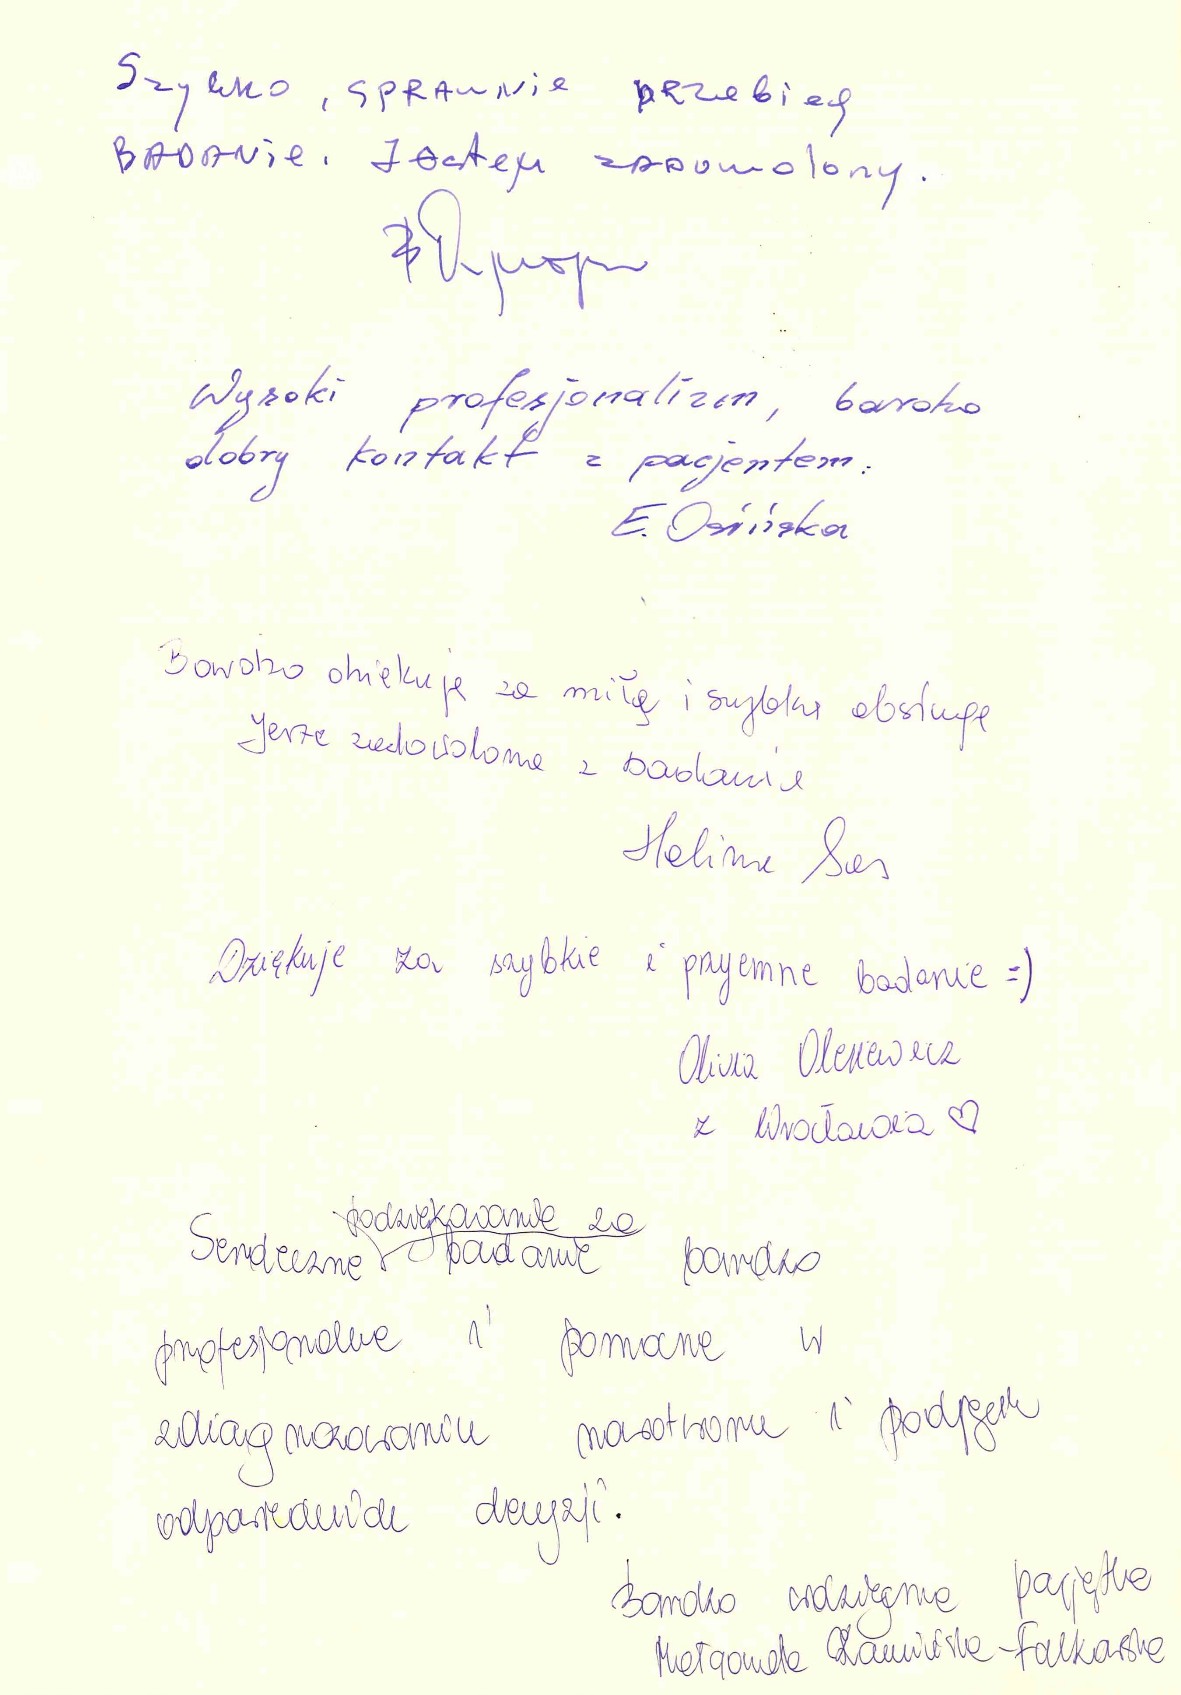 Szybko, SPRAWNie pRZebieg
BADANie. Jestem zADOwolony.
Wysoki profesjonalizm, bardzo
dobry kontakt z pacjentem.
E. Osińska
Bardzo dziękuję za miłą i szybką obsługę
Jestę zadowolona z badanie
Halina Sas
Dziękuje za szybkie i przyemne badanie =)
Oliwia
z Wrocławia ♡
podziękowanie za
Serdeczne badanie bardzo
profesjonalne i pomocne w
zdiagnozowaniu nowotworu i podjęciu
odpowiednich decyzji.
Bardzo wdzięczna pacjętka
Małgorzata Kamińska-Falkowska